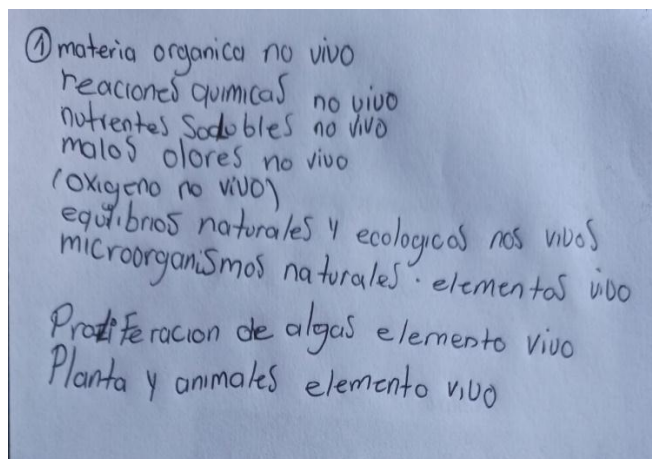 ① materia organica no vivo
reaciones quimicas no vivo
nutrentes Sodobles no vivo
malos olores no vivo
(oxigeno no vivo)
equilibrios naturales y ecologicos nos vivos
microorganismos naturales. elementos vivo
Proliferacion de algas elemento vivo
Planta y animales elemento vivo